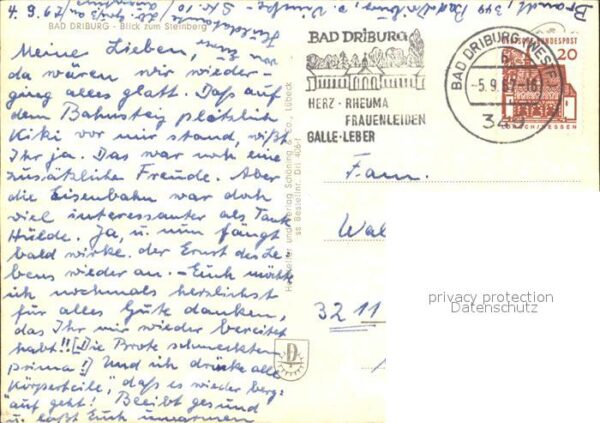 4. 9. 67
BAD DRIBURG - Blick zum Steinberg
Meine Lieben, nun
da wären wir wieder -
ging alles glatt. Daß auf
dem Bahnsteig plötzlich
Kiki vor mir stand, wißt
Ihr ja. Das war noch eine
zusätzliche Freude. Aber
die Eisenbahn war doch
viel interessanter als Tante
Hülde. Ja, u. nun fängt
bald wirkl. der Ernst des Le-
bens wieder an. - Euch möchte
ich nochmals herzlichst
für alles Gute danken,
das Ihr mir wieder bereitet
habt!! [Die Brote schmeckten
prima!] Und ich drücke alle
"Körperteile", daß es wieder berg-
auf geht! Bleibt gesund
u. laßt Euch umarmen
Hersteller und Verlag Schöning & Co., Lübeck
BAD DRIBURG
HERZ · RHEUMA
FRAUENLEIDEN
GALLE · LEBER
BAD DRIBURG (WESTF)
-5.9.67-16
349
DEUTSCHE BUNDESPOST
20
LORSCH/HESSEN
Fam.
Wal
32 11
privacy protection
Datenschutz